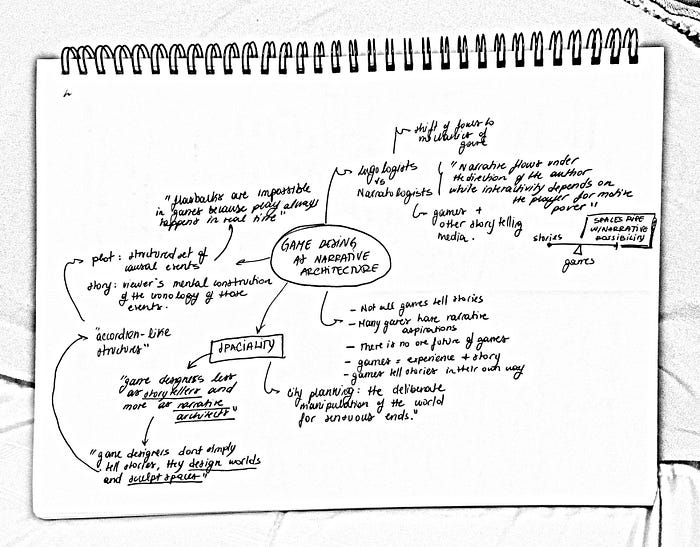 shift of focus to
mechanics of
game
Ludologists
vs
Narratologists
"Narrative flows under
the direction of the author
while interactivity depends on
the player for motive
power"
games +
other story telling
media.
stories
games
SPACES RIPE
W/NARRATIVE
POSSIBILITY
"flashbacks are impossible
in games because play always
happens in real time"
GAME DESING
AS NARRATIVE
ARCHITECTURE
plot: structured set of
causal events
story: viewer's mental construction
of the cronology of those
events.
"accordion-like
structures"
SPACIALITY
"game designers less
as story tellers and
more as narrative
architects"
"game designers dont simply
tell stories, they design worlds
and sculpt spaces"
- Not all games tell stories
- Many games have narrative
aspirations
- There is no one future of games
- games = experience + story
- games tell stories in their own way
city planning: the deliberate
manipulation of the world
for sensuous ends."